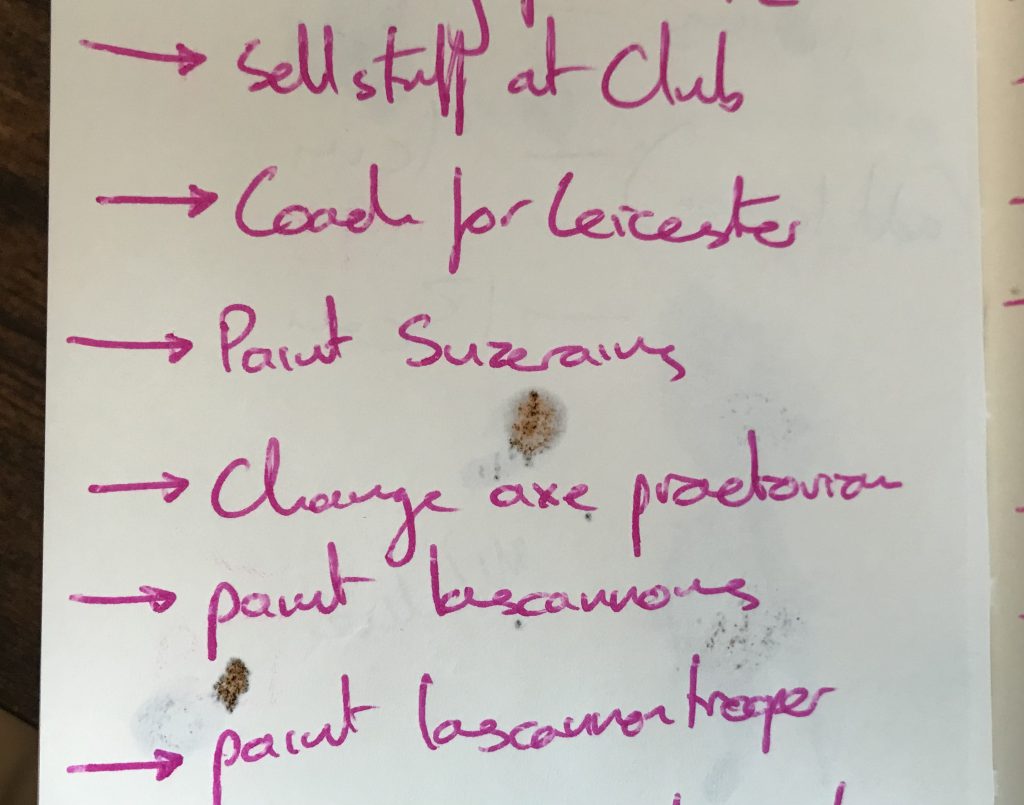 → Sell stuff at Club
→ Coach for Leicester
→ Paint Suzerains
→ Change axe praetorian
→ paint lascannons
→ paint lascannon trooper